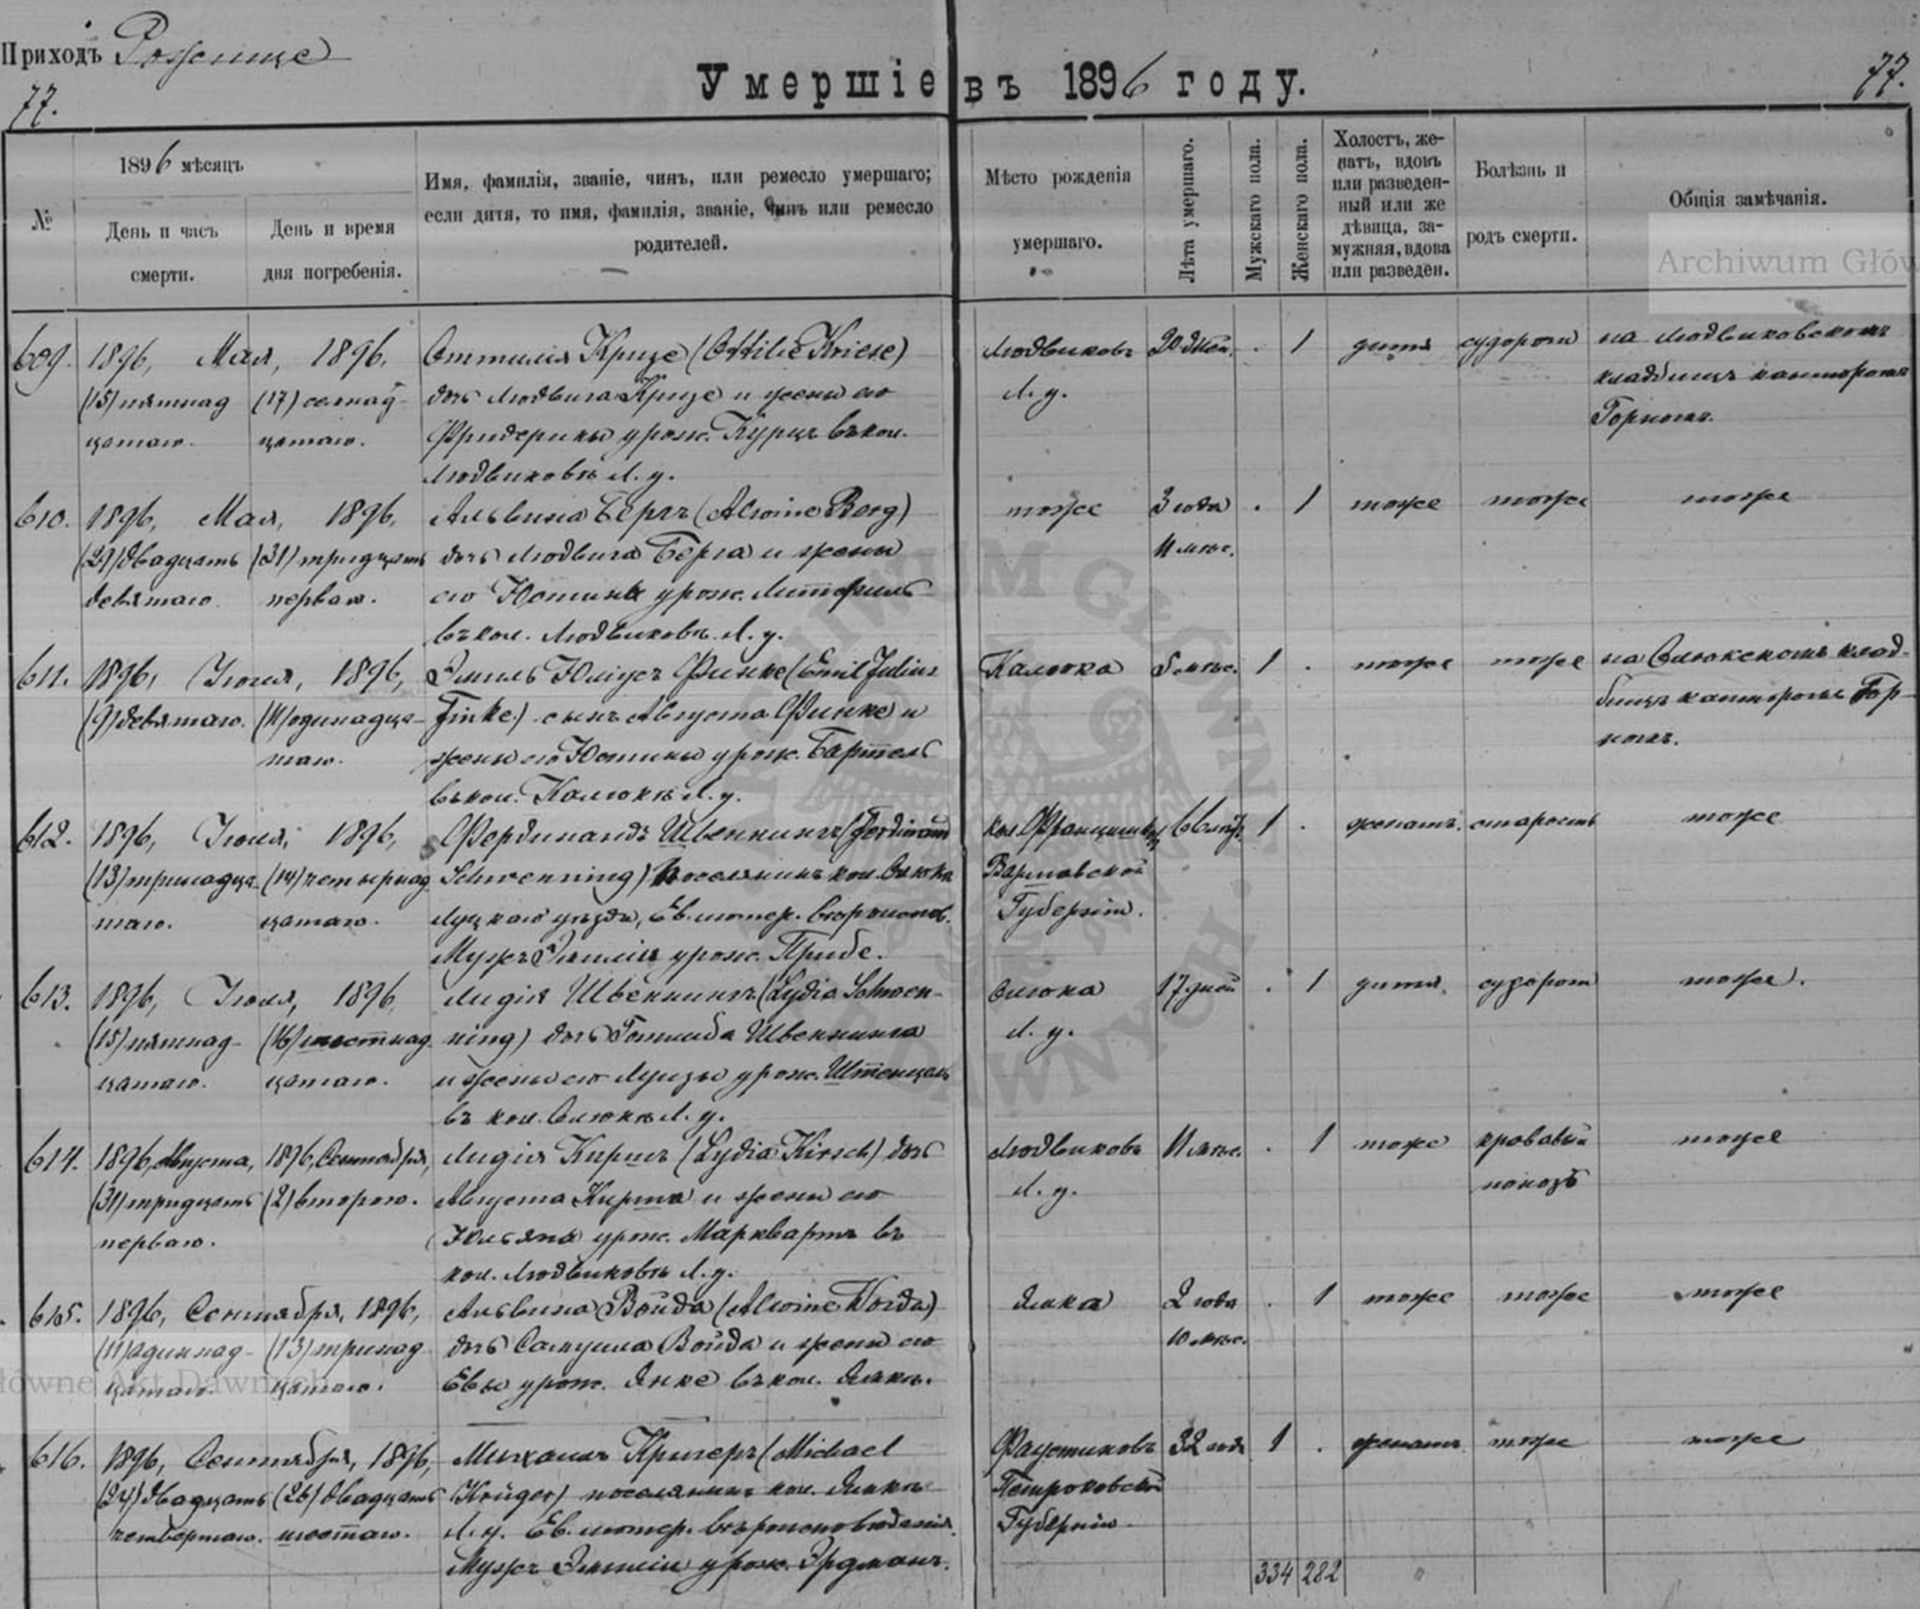 Приходъ Рожище
77.
Умершіе въ 1896 году.
77.
№
1896 мѣсяцъ
День и часъ
смерти.
День и время
дня погребенія.
Имя, фамилія, званіе, чинъ, или ремесло умершаго;
если дитя, то имя, фамилія, званіе, чинъ или ремесло
родителей.
Мѣсто рожденія
умершаго.
Лѣта умершаго.
Мужскаго пола.
Женскаго пола.
Холостъ, же-
натъ, вдовъ
или разведен-
ный или же
дѣвица, за-
мужняя, вдова
или разведен.
Болѣзнь и
родъ смерти.
Общія замѣчанія.
Archiwum Głów
609. 1896, Мая, 1896, Оттилія Кризе (Ottilie Kriese) Людвиковъ 20 дней . 1 дитя судороги на Людвиковскомъ
(15) пятнад (17) семнад дочь Людвига Кризе и жены его Л. у. кладбищѣ канторомъ
цатаго. цатаго. Фридерики урож. Курцъ въ кол. Горномъ.
Людвиковѣ Л. у.
610. 1896, Мая, 1896, Альвина Бергъ (Alwine Berg) тоже 3 года . 1 тоже тоже тоже
(29) двадцать (31) тридцать дочь Людвига Берга и жены 11 мѣс.
девятаго. перваго. его Юстины урож.
въ кол. Людвиковѣ Л. у.
611. 1896, Іюня, 1896, Эмиль Юліусъ Финке (Emil Julius Калювка мѣс. 1 . тоже тоже на клад-
(9) девятаго. (11) одинадца- Finke) сынъ Августа Финке и бищѣ канторомъ Гор-
таго. жены его Юстины урож. Бартель номъ.
въ кол. Л. у.
612. 1896, 1896, Фердинандъ Швеннингъ (Ferdinand кол. 66 лѣтъ 1 . женатъ. старость тоже
(13) тринадца- (14) четырнад Schwenning) поселянинъ кол. Варшавской
таго. цатаго. Луцкаго уѣзда, Ев. лютер. вѣроисповѣд. Губерніи.
Мужъ Эмиліи урож. Прибе.
613. 1896, 1896 Лидія Швеннингъ (Lydia Schwen- 17 дней . 1 дитя судороги тоже.
(15) пятнад- (16) шестнад ning) дочь Готлиба Швеннинга Л. у.
цатаго. цатаго. и жены его Луизы урож.
въ кол. Л. у.
614. 1896, Августа, 1896, Сентября, Лидія Киршъ (Lydia Kirsch) дочь Людвиковъ 11 мѣс. . 1 тоже кровавый тоже
(31) тридцать (2) второго. Августа Кирша и жены его Л. у. поносъ
перваго. Юльяны урож. Марквартъ въ
кол. Людвиковѣ Л. у.
615. 1896, Сентября, 1896, Альвина Войда (Alwine Woida) 2 года . 1 тоже тоже тоже
(11) одиннад- (13) тринад дочь Самуила Войда и жены его 10 мѣс.
цатаго. цатаго. Евы урож. Янке въ кол.
łówne Akt Dawnych
616. 1896, Сентября, 1896, Михаилъ Кригеръ (Michael Фаустиновъ 32 года 1 . женатъ тоже тоже
(24) двадцать (26) двадцать Krüger) поселянинъ кол. Петроковской
четвертаго. шестаго. Л. у. Ев. лютер. вѣроисповѣданія. Губерніи.
Мужъ Эмиліи урож. Эрдманъ.
334 282